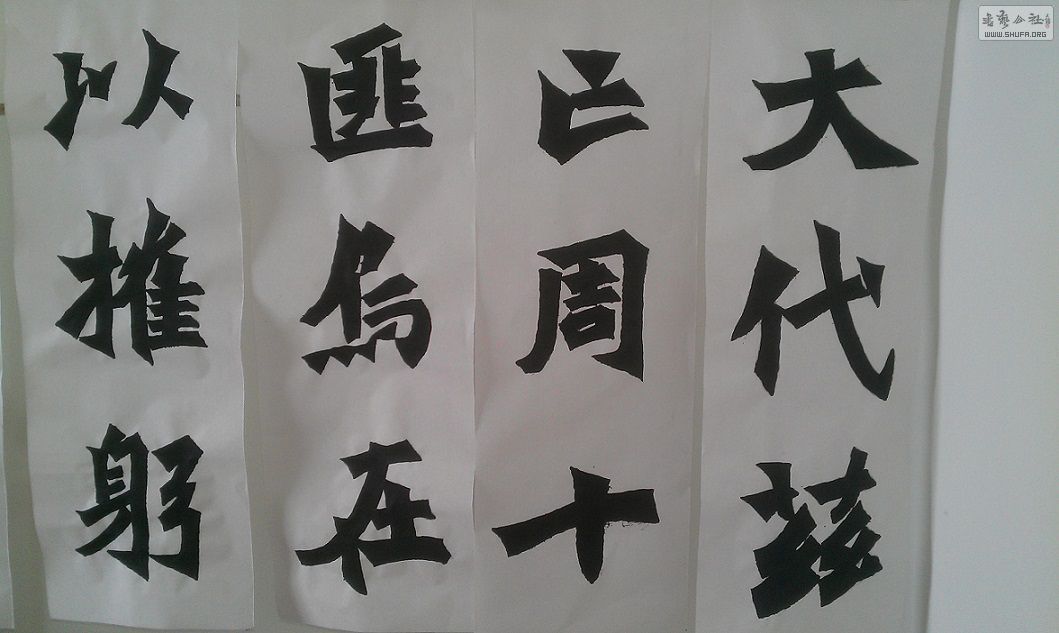 大代茲
亡周十
匪烏在
以推躬
书艺公社
WWW.SHUFA.ORG